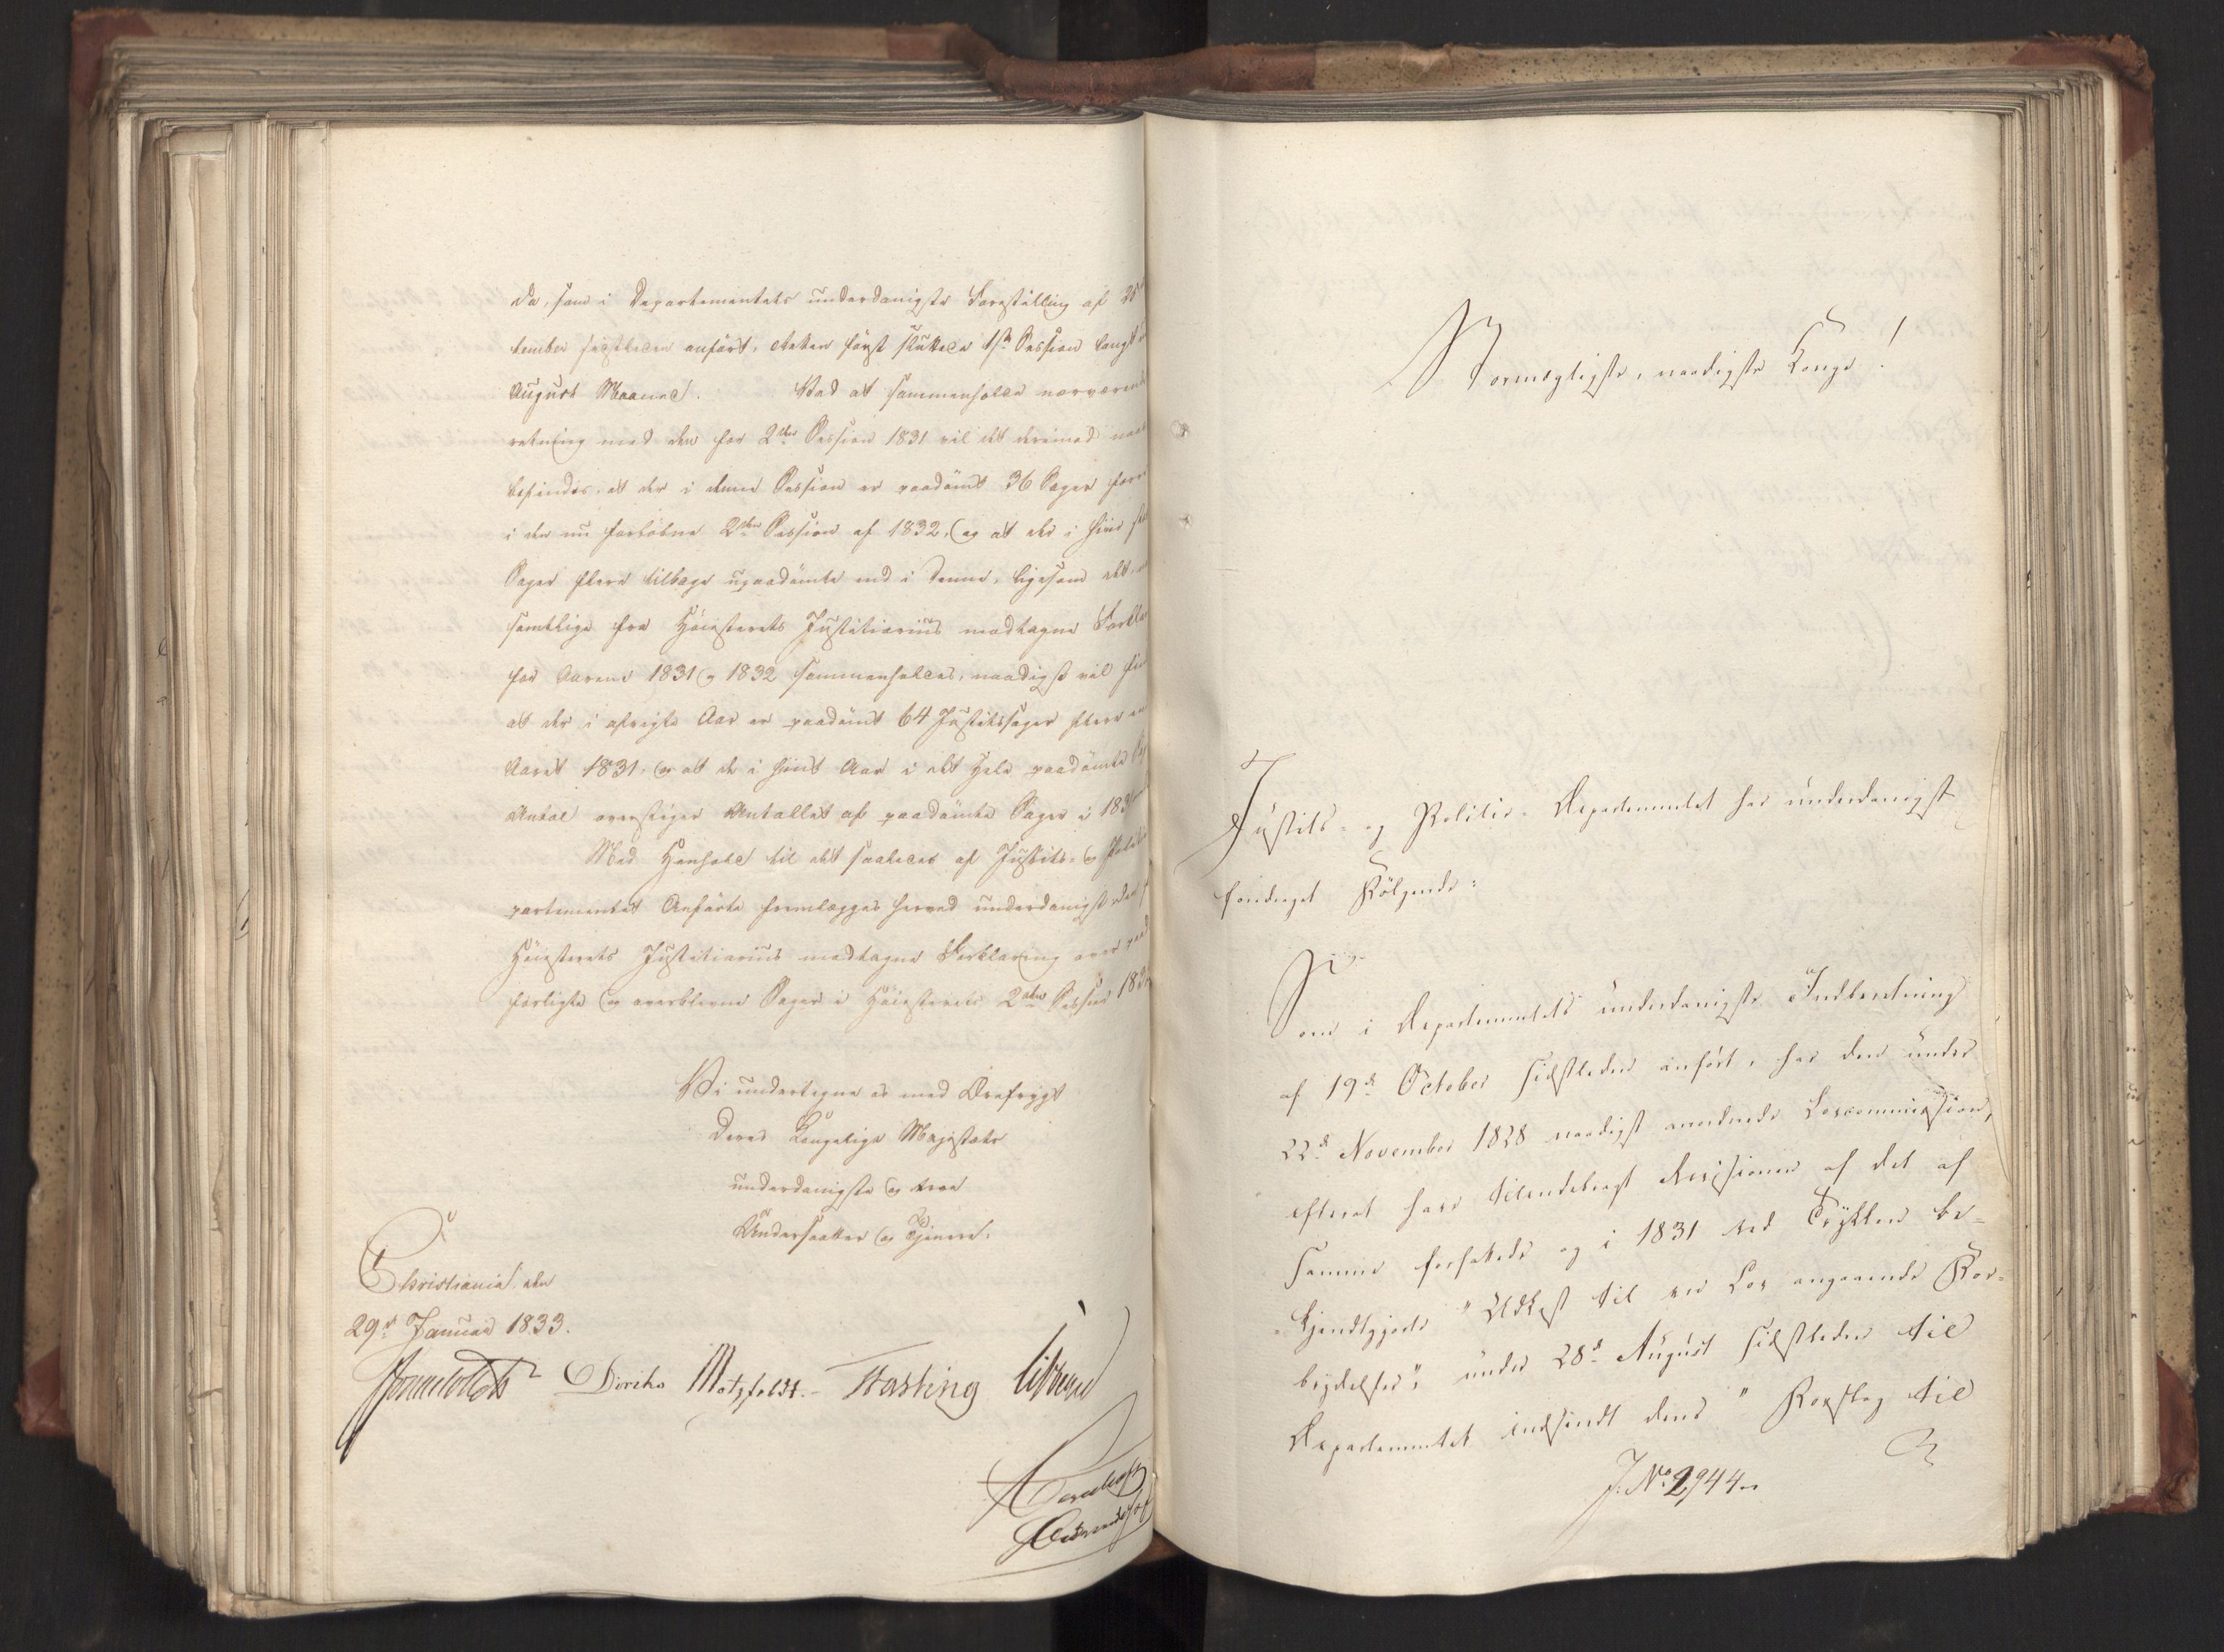 da, som i Departementets underdanigste Forestilling af 25
tember sidstleden anført, Retten først sluttede 1ste Session langt
August Maaned. Ved at sammenholde nærværende
retning med den for 2den Session 1831 vil det derimod naa
befindes, at der i denne Session er paadömt 36 Sager færre
i den nu forløbne 2den Session af 1832, og at der i hiin
Sager flere tilbage upaadömte end i denne, ligesom det
samtlige fra Høiesterets Justitiarius modtagne Forkla
for Aarene 1831 og 1832 sammenholdes, naadigst vil
at der i afvigte Aar er paadömt 64 Justitssager flere en
Aaret 1831, og at de i hiint Aar i det Hele paadömte
Antal overstiger Antallet af paadömte Sager i 183
Med Henhold til det saaledes af Justits- og Politie
partementet Anførte fremlægges herved underdanigst den
Høiesterets Justitiarius modtagne Forklaring over paad
forligte og overblevne Sager i Høiesterets 2den Session 183
Vi undertegne os med Ærefrygt
Deres Kongelige Majestæts
underdanigste og troe
Undersaatter og Tjenere.
Christiania den
29de Januar 1833.
Diriks Motzfeldt. Fasting
Vormægtigste, naadigste Konge!
Justits- og Politie-Departementet har underdanigst
foredraget Følgende:
Som i Departementets underdanigste Indberetning
af 19de October sidstleden anført, har den under
22de November 1828 naadigst anordnede Lovcommission,
efterat have tilendebragt Revisionen af det af
samme forfattede og i 1831 ved Trykken be-
kjendtgjorte "Udkast til en Lov angaaende For-
brydelser", under 28de August sidstleden til
Departementet indsendt dens "Forslag til
J. No 2944